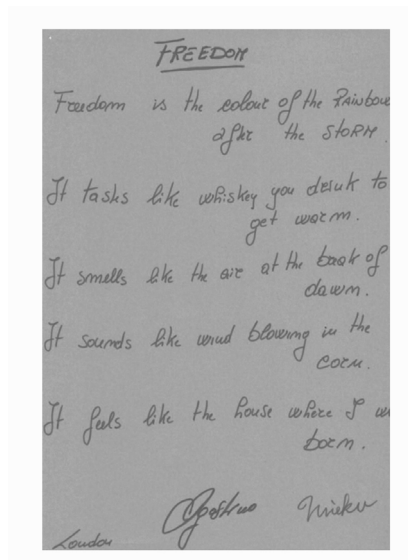 FREEDOM
Freedom is the colour of the RAinbow
after the StoRM.
It tastes like whiskey you drink to
get warm.
It smells like the air at the break of
dawn.
It sounds like wind blowing in the
corn.
It feels like the house where I w
born.
London